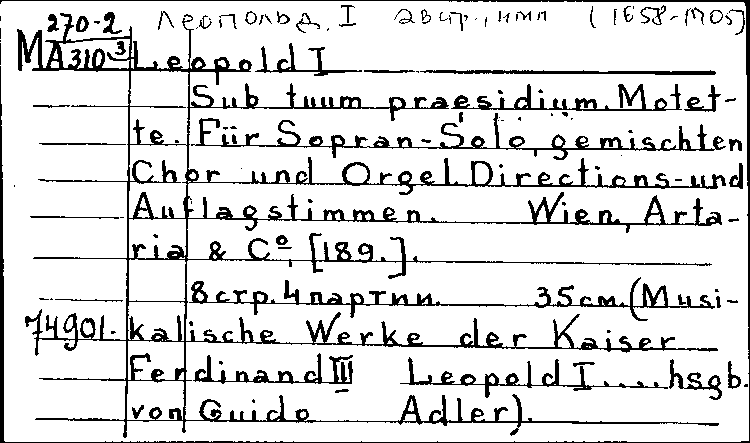 270-2 Леопольд I австр., имп (1658-1705)
МА310-3 Leopold I
Sub tuum praesidium. Motet-
te. Für Sopran-Solo, gemischten
Chor und Orgel. Directions-und
Auflagstimmen. Wien, Arta-
ria & Cº, [189.].
8 стр. 4 партии. 35 см. (Musi-
74901. kalische Werke der Kaiser
Ferdinand III Leopold I .... hsgb.
von Guido Adler).